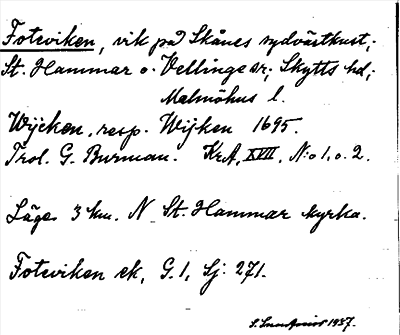 Foteviken, vik på Skånes sydvästkust;
St. Hammar o. Vellinge sr; Skytts hd;
Malmöhus l.
Wÿcken, resp. Wijken 1695.
Trol. G. Burman. KrA, XVIII, N:o 1, o. 2.
Läge 3 km. N St. Hammar kyrka.
Foteviken ek, G. 1, Sj: 271.
S. 1937.